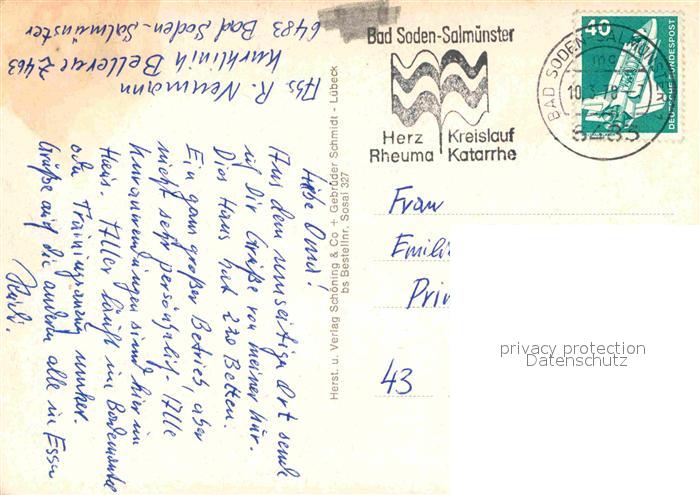 Abs. R. Neumann
Kurklinik Bellevue Z 463
6483 Bad Soden-Salmünster
Liebe Omi!
Aus dem umseitige Ort sende
ich Dir Grüße von meiner Kur.
Dies Haus hat 220 Betten.
Ein ganz großer Betrieb, aber
nicht sehr persönlich. Alle
Kuranwendungen sind hier im
Haus. Alles läuft im Bademantel
oder Trainingsanzug umher.
Grüße auf die anderen alle in Essen
Herst. u. Verlag Schöning & Co + Gebrüder Schmidt - Lübeck
bs Bestellnr. Sosal 327
Bad Soden-Salmünster
Herz Kreislauf
Rheuma Katarrhe
BAD SODEN-SALMÜNSTER
mc
6483
40
DEUTSCHE BUNDESPOST
Frau
Emili
Pri
43
privacy protection
Datenschutz